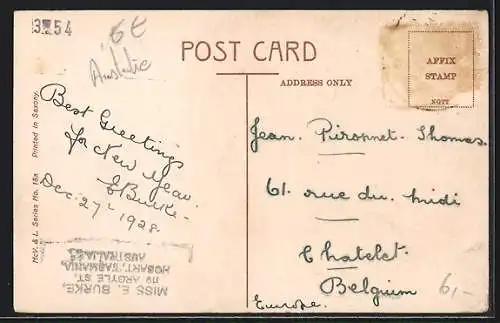 3 54
6E
Australie
POST CARD
ADDRESS ONLY
AFFIX
STAMP
McV. & L. Series No. 18A Printed in Saxony.
Best Greetings
for New Year.
E Burke -
Dec. 27th 1928
MISS E. BURKE,
119 ARGYLE ST.
HOBART, TASMANIA,
AUSTRALIA.
Jean. Piropnet. Thomas.
61. rue du midi
Chatelet.
Belgium
Europe.
6,-